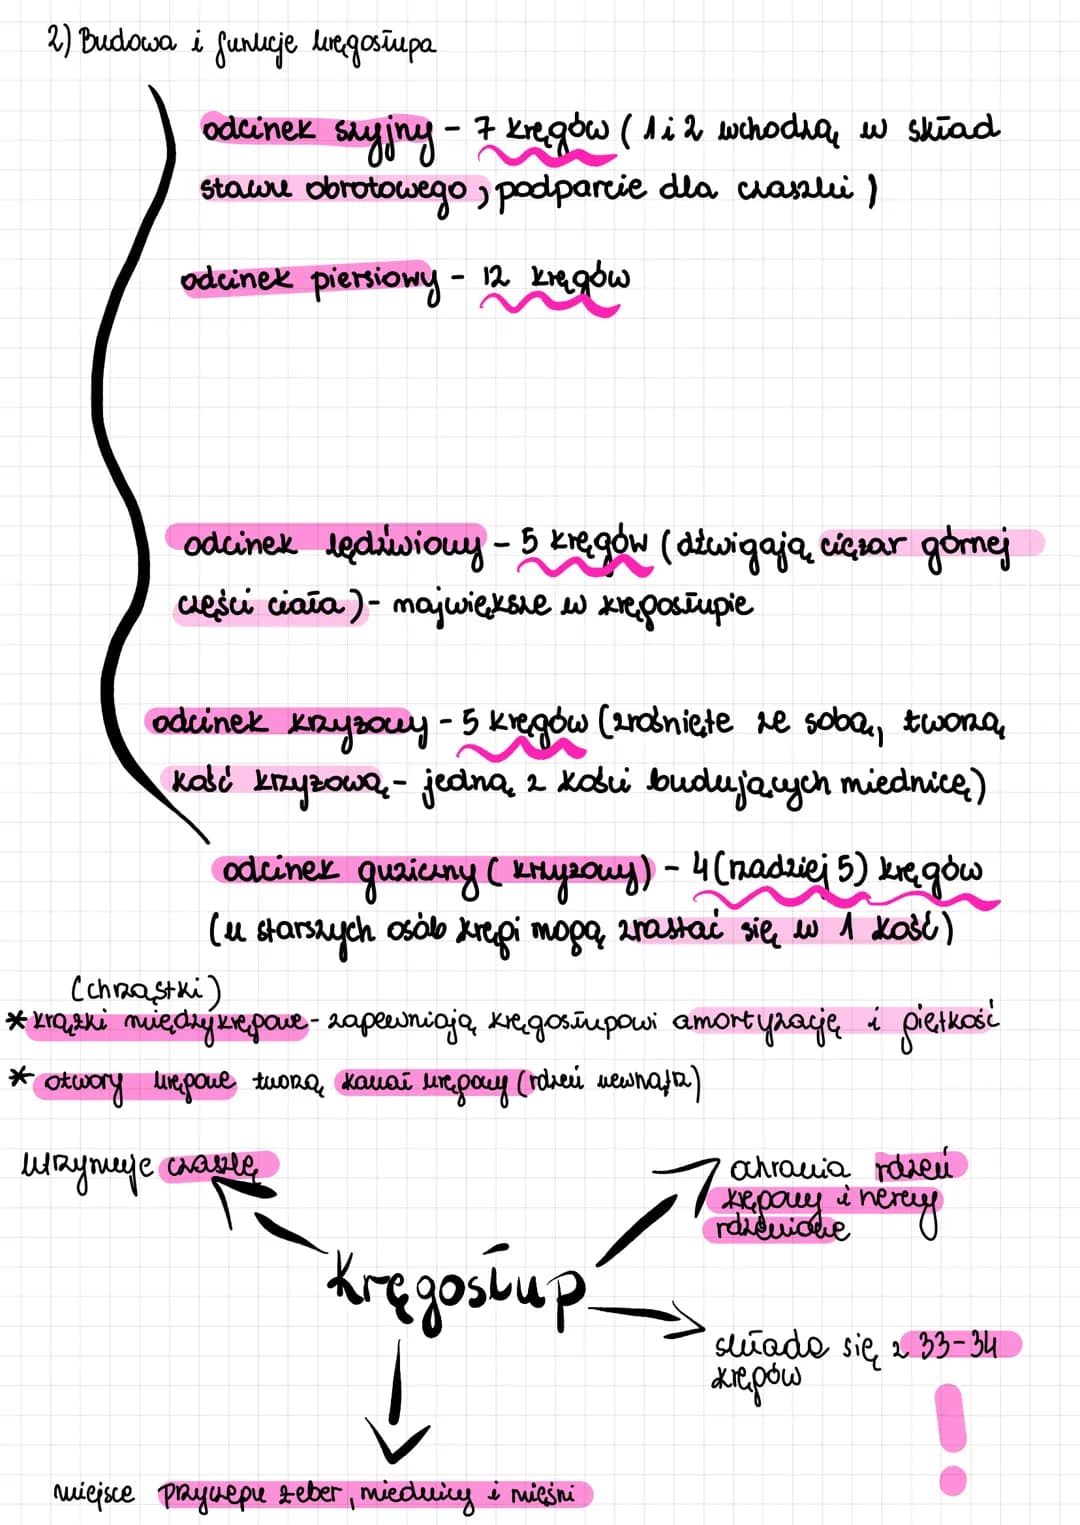 2) Budowa i funkcje kręgosłupa
odcinek szyjny - 7 kręgów ( 1 i 2 wchodzą w skład
stawu obrotowego, podparcie dla czaszki )
odcinek piersiowy - 12 kręgów
odcinek lędźwiowy - 5 kręgów (dźwigają ciężar górnej
części ciała) - największe w kręgosłupie
odcinek krzyżowy - 5 kręgów (zrośnięte ze sobą, tworzą
kość krzyżową - jedną z kości budujących miednicę)
odcinek guziczny ( krzyżowy) - 4 (rzadziej 5) kręgów
(u starszych osób kręgi mogą zrastać się w 1 kość)
(chrząstki)
* krążki międzykręgowe - zapewniają kręgosłupowi amortyzację i giętkość
* otwory kręgowe tworzą kanał kręgowy (rdzeń wewnątrz)
utrzymuje czaszkę
ochrania rdzeń
kręgowy i nerwy
rdzeniowe
Kręgosłup
składa się z 33-34
kręgów
!
miejsce przyczepu żeber, miednicy i mięśni